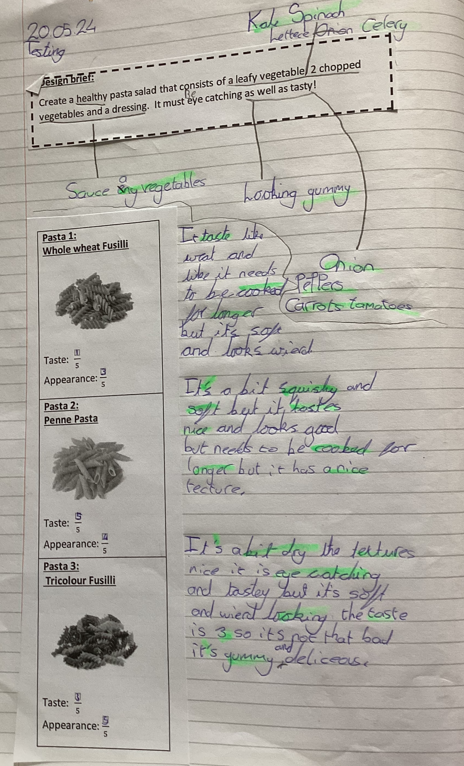 20.05.24
Testing
Kale Spinach
Lettece Onion Celery
Design brief:
Create a healthy pasta salad that consists of a leafy vegetable, 2 chopped
vegetables and a dressing. It must be eye catching as well as tasty!
Sauce vegetables
Looking yummy
Onion
Peppers
Carrots tomatoes
Pasta 1:
Whole wheat Fusilli
Taste: 1/5
Appearance: 3/5
It taste like
weat and
like it needs
to be cooked
for longer
but it's safe
and looks wierd
Pasta 2:
Penne Pasta
Taste: 5/5
Appearance: /5
It's a bit squishy and
soft but it tastes
nice and looks good
but needs to be cooked for
longer but it has a nice
tecture.
Pasta 3:
Tricolour Fusilli
Taste: /5
Appearance: 5/5
It's a bit dry the textures
nice it is eye catching
and tastey but it's soft
and wierd looking the taste
is 3 so it's not that bad
it's yummy and deliceas.